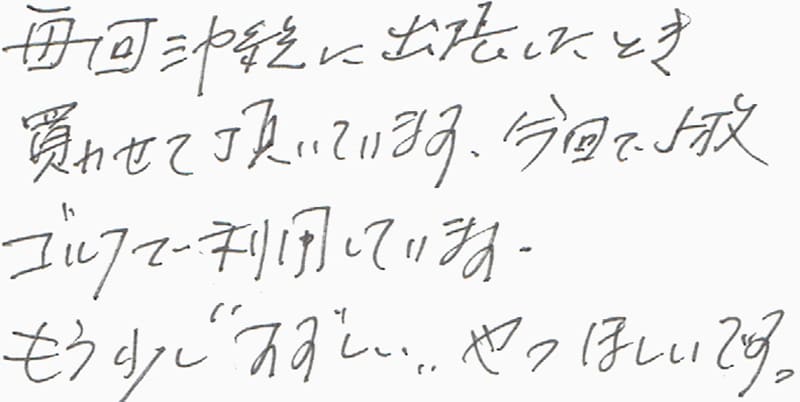 毎回沖縄に出張したとき
買わせて頂いています、今回で5枚
ゴルフで利用しています.
もう少し"すずしい"やつほしいです。